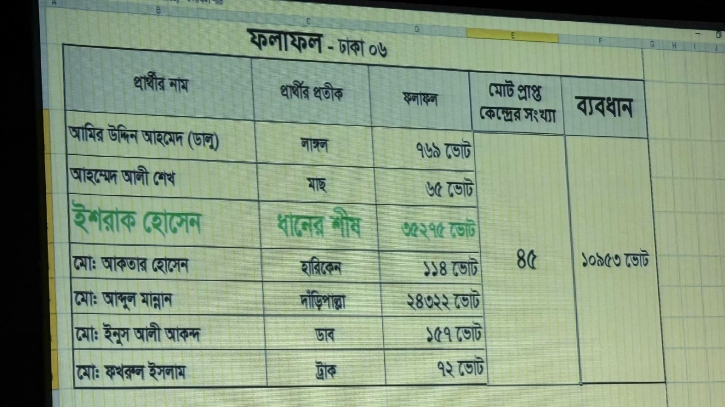 ফলাফল - ঢাকা ০৬
প্রার্থীর নাম প্রার্থীর প্রতীক ফলাফল মোট প্রাপ্ত কেন্দ্রের সংখ্যা ব্যবধান
আমির উদ্দিন আহমেদ (ডালু) লাঙ্গল ৭৬৯ ভোট
আহম্মেদ আলী শেখ মাছ ৬৫ ভোট
ইশরাক হোসেন ধানের শীষ ৩৫২৭৫ ভোট ৪৫ ১০৯৫৩ ভোট
মো: আকতার হোসেন হারিকেন ১১৪ ভোট
মো: আব্দুল মান্নান দাঁড়িপাল্লা ২৪৩২২ ভোট
মো: ইনুস আলী আকন্দ ডাব ১৫৭ ভোট
মো: ফখরুল ইসলাম ট্রাক ৭২ ভোট